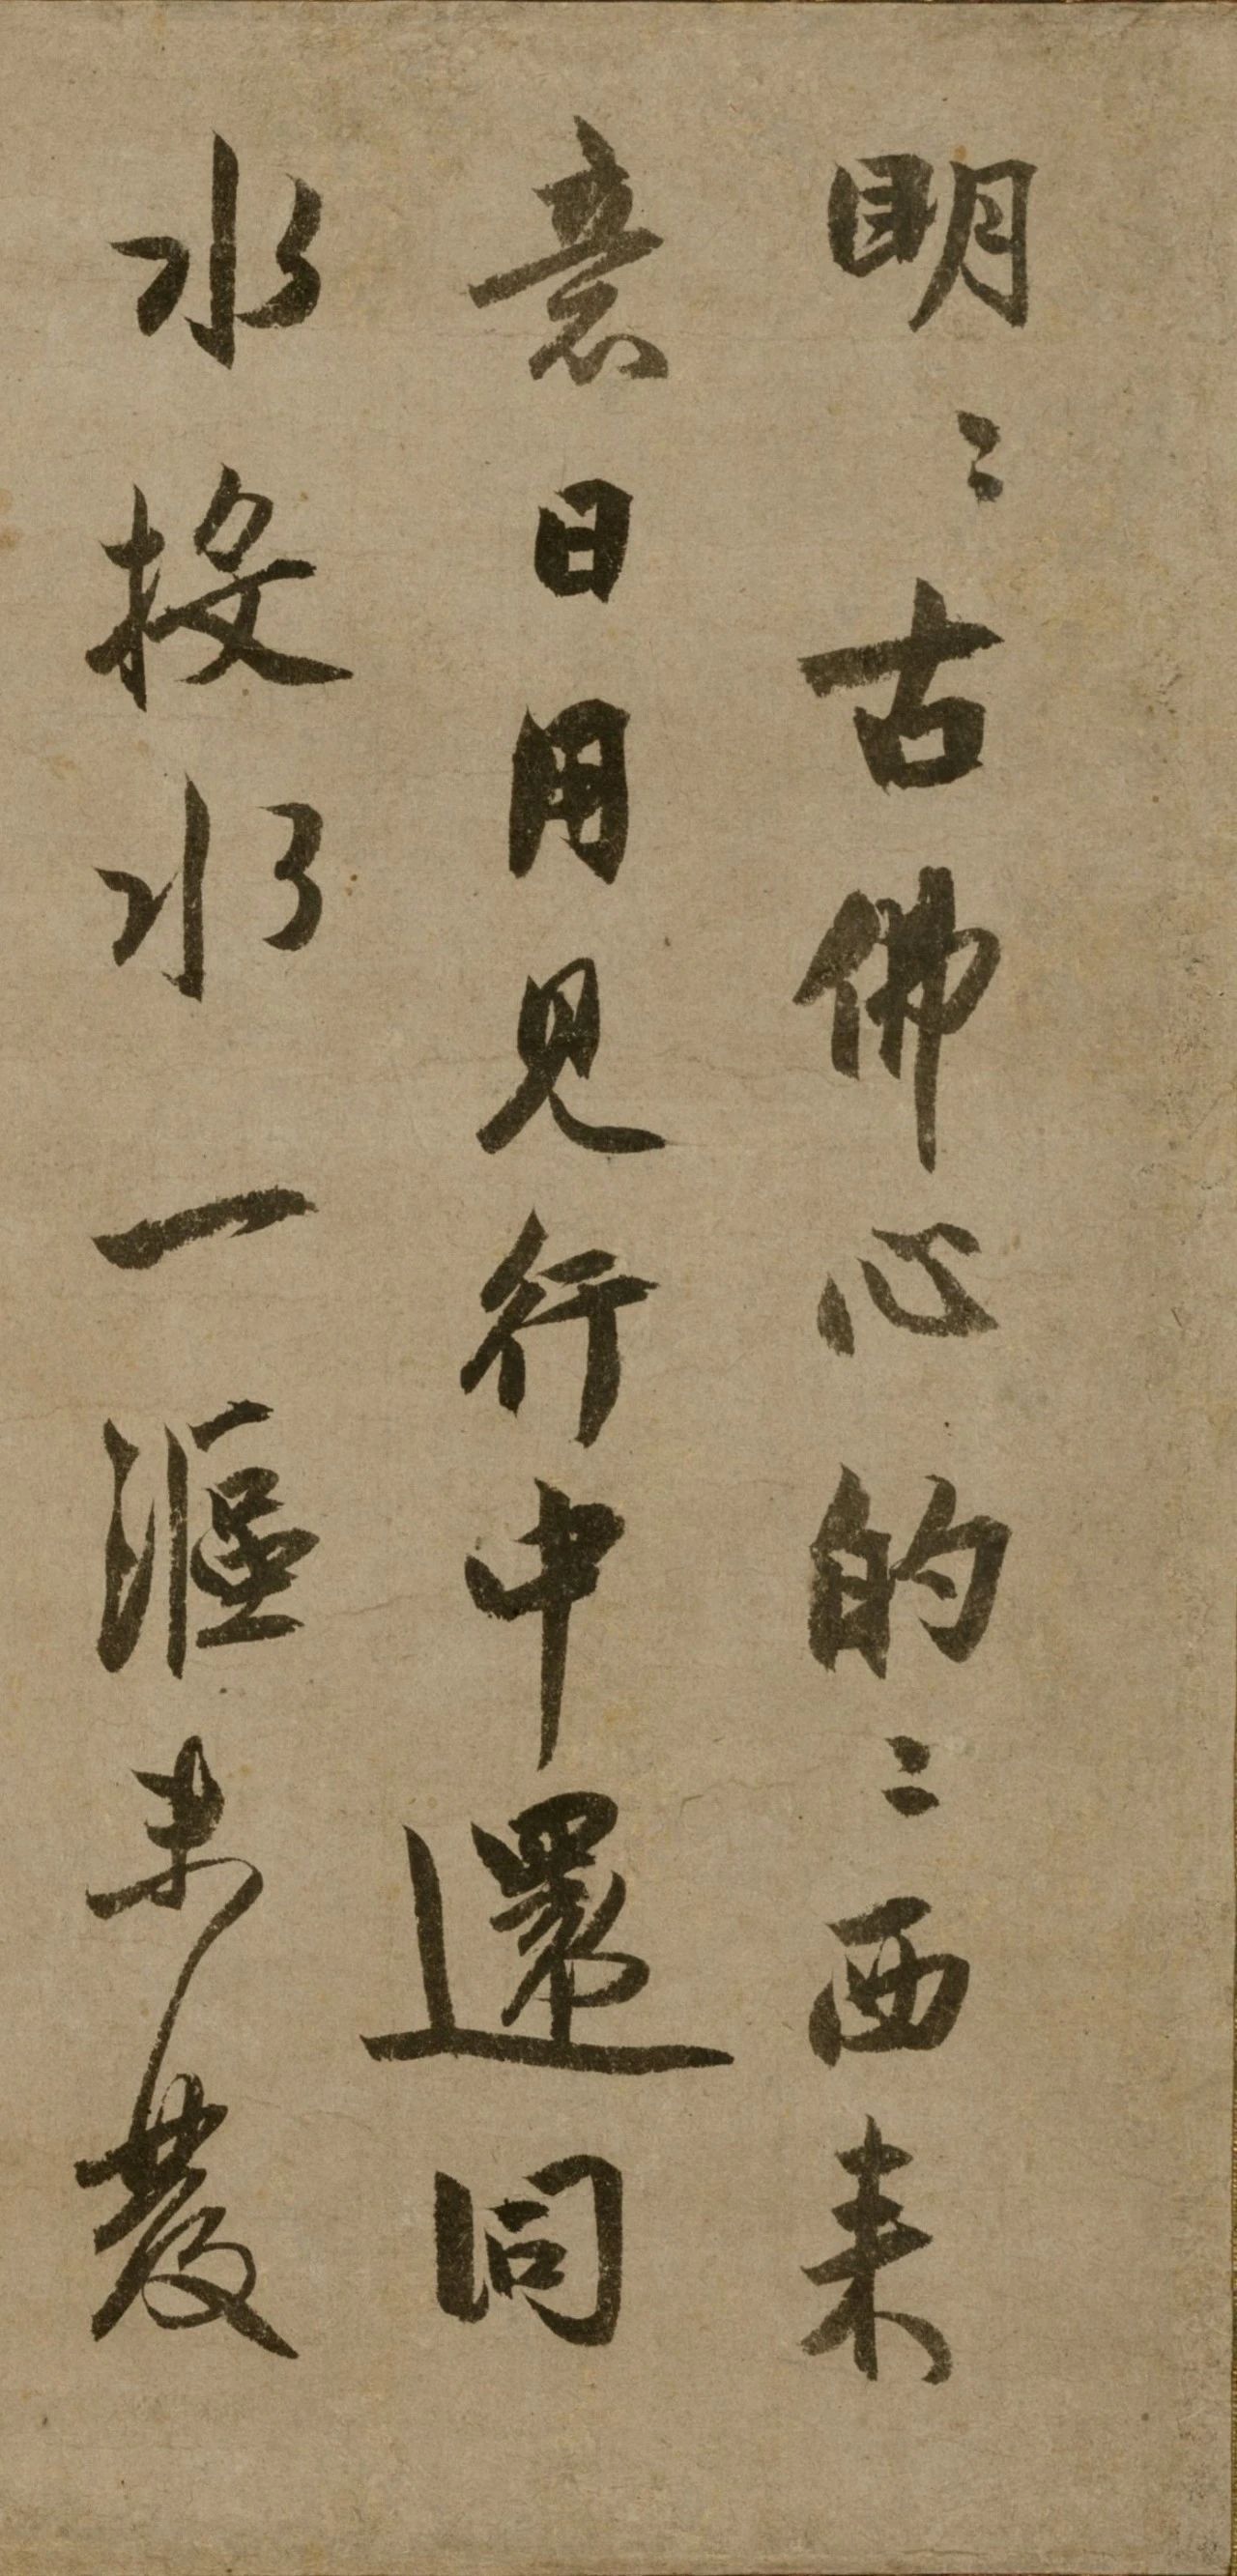 明〻古佛心的〻西来
意日用見行中還同
水投水一漚未發